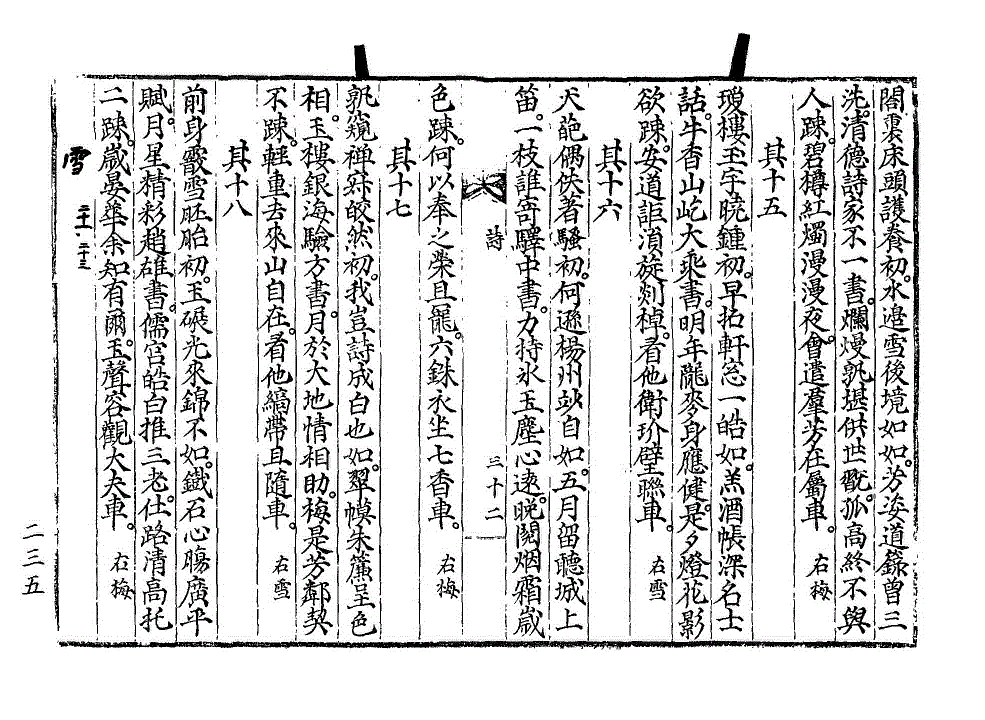 閤裏床頭護養初。水邉雪後境如如。芳姿道籙曾三
洗。清德詩家不一書。爛熳孰堪供世翫。孤高終不與
人踈。碧樽紅燭漫漫夜。會遣羣芳在屬車。 右梅
其十五
瓊樓玉宇曉鍾初。早拓軒窓一皓如。羔酒帳深名士
話。牛香山屹大乘書。明年隴麥身應健。是夕燈花影
欲踈。安道詎湏旋剡棹。看他衛玠璧聯車。 右雪
其十六
天葩偶佚著騷初。何遜楊州妙自如。五月留聽城上
笛。一枝誰寄驛中書。力持氷玉塵心遠。晩閱烟霜歲
詩
三十二
色踈。何以奉之榮且寵。六銖衣坐七香車。 右梅
其十七
孰窺禪寂皎然初。我豈詩成白也如。翠幙朱簾呈色
相。玉樓銀海驗方書。月於大地情相助。梅是芳鄰契
不踈。輕重去來山自在。看他縞帶且隨車。 右雪
其十八
前身霰雪胚胎初。玉碾光來錦不如。鐵石心膓廣平
賦。月星精彩趙雄書。儒宮皓白推三老。仕路清高托
二踈。歲晏華余知有爾。玉聲容觀大夫車。 右梅
雪
二三五